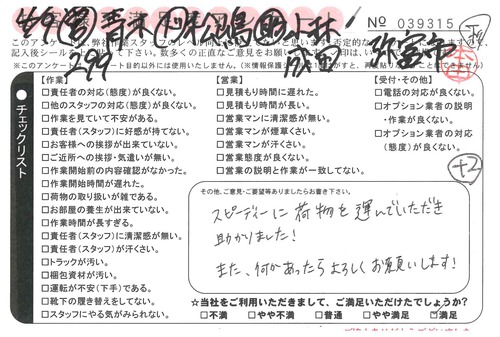 No 039315
記入後シールをして
※このアンケート
【作業】
□責任者の対応(態度)が良くない。
□他のスタッフの対応(態度)が良くない。
□作業を見ていて不安がある。
□責任者(スタッフ)に好感が持てない。
□お客様への挨拶が出来ていない。
□ご近所への挨拶・気遣いが無い。
□作業開始前の内容確認がなかった。
□作業開始時間が遅れた。
□荷物の取り扱いが雑である。
□お部屋の養生が出来ていない。
□作業時間が長すぎる。
□責任者(スタッフ)に清潔感が無い。
□責任者(スタッフ)が汗くさい。
□トラックが汚い。
□梱包資材が汚い。
□運転が不安(下手)である。
□靴下の履き替えをしてない。
□スタッフにやる気がみられない。
【営業】
□見積もり時間に遅れた。
□見積もり時間が長い。
□営業マンに清潔感が無い。
□営業マンが煙草くさい。
□営業マンが汗くさい。
□営業態度が良くない。
□営業の説明と作業が一致してない。
【受付・その他】
□電話の対応が良くない。
□オプション業者の説明
・作業が良くない。
□オプション業者の対応
(態度)が良くない。
チェックリスト
+2
その他、ご意見・ご要望等ありましたらお書き下さい。
スピーディーに荷物を運んでいただき
助かりました!
また、何かあったらよろしくお願いします!
☆当社をご利用いただきまして、ご満足いただけたでしょうか?
□不満 □やや不満 □普通 □やや満足 □満足